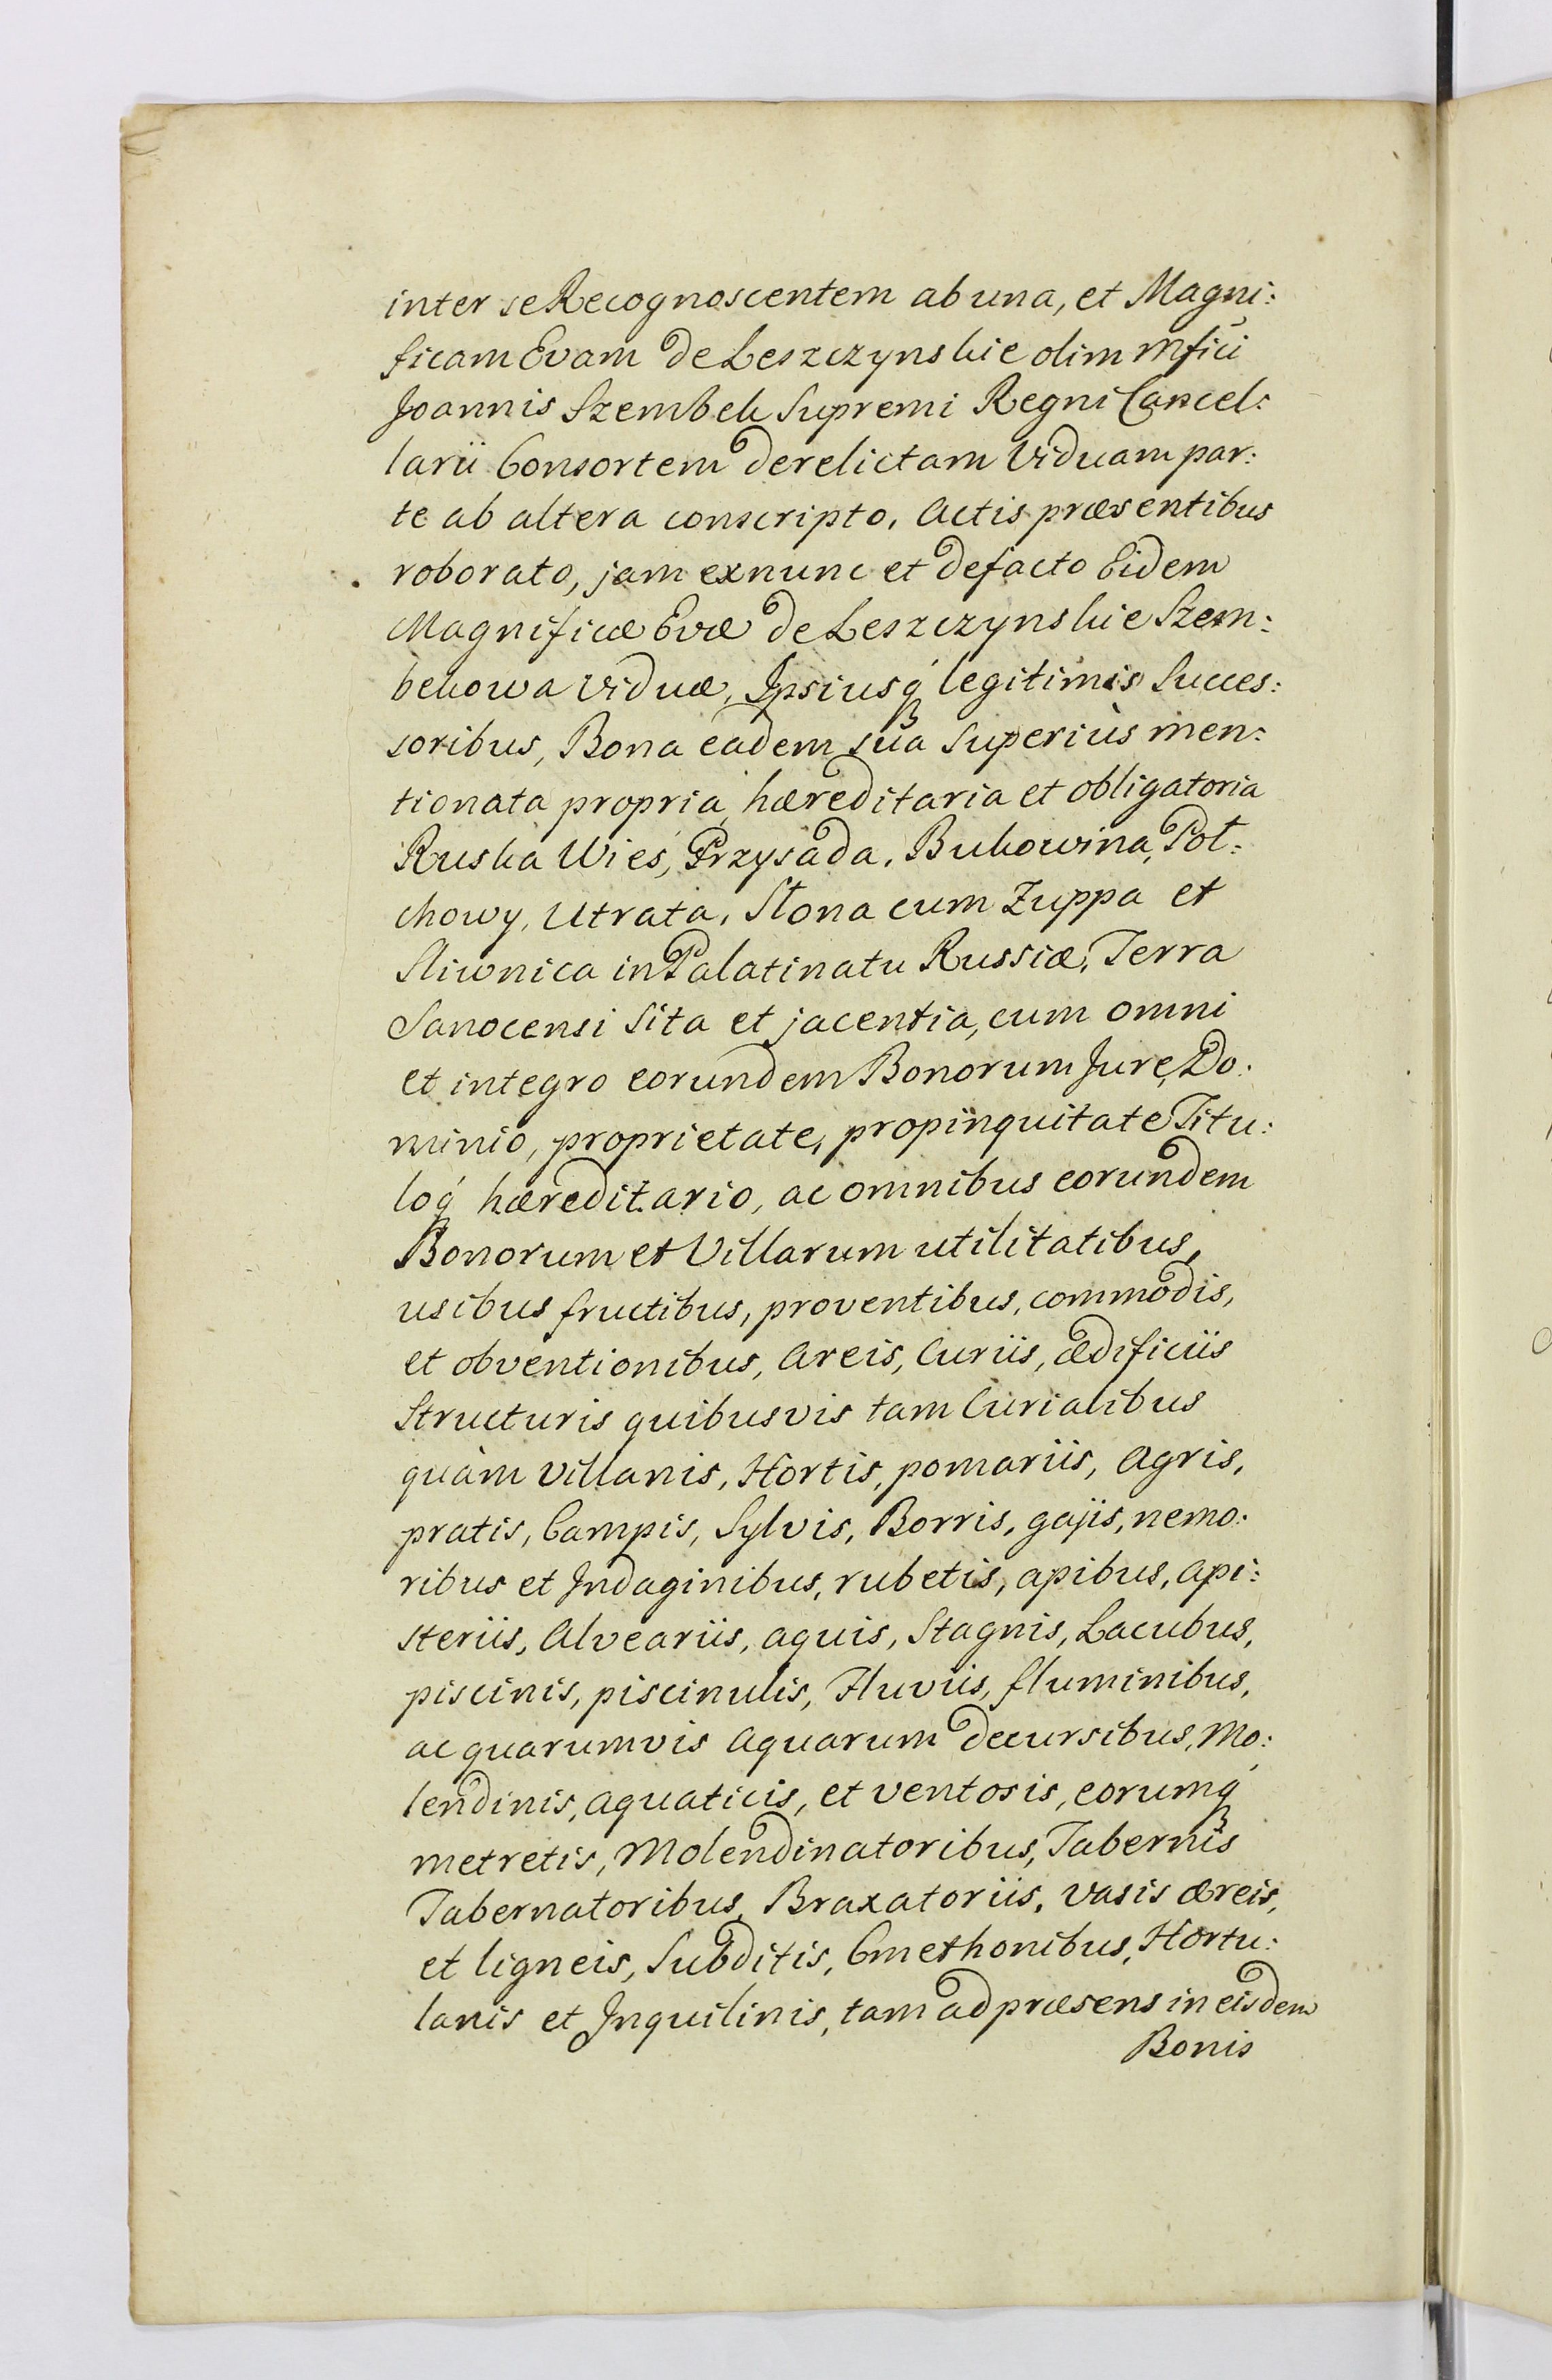 inter se Recognoscentem ab una, et Magni:
ficam Evam de Leszczynskie olim Mfici
Joannis Szembek Supremi Regni Cancel:
larii Consortem derelictam Viduam par:
te ab altera conscripto, Actis præsentibus
roborato, jam exnunc et defacto Eidem
Magnificæ Evæ de Leszczynskie Szem:
bekowa Viduæ, Ipsiusq́ legitimis Succes:
soribus, Bona eadem sua Superiùs men:
tionata propria, hæreditaria et obligatoria
Ruska Wieś, Przysada, Bukowina, Poł:
chowy, Utrata, Słona cum Zuppa et
Sliwnica in Palatinatu Russiæ, Terra
Sanocensi Sita et jacentia, cum omni
et integro eorundem Bonorum Jure, Do:
minio, proprietate, propinquitate Titu:
loq́ hæreditario, ac omnibus eorundem
Bonorum et Villarum utilitatibus,
usibus fructibus, proventibus, commodis,
et obventionibus, Areis, Curiis, ædificiis
Structuris quibusvis tam Curialibus
quàm villanis, Hortis, pomariis, Agris,
pratis, Campis, Sylvis, Borris, gajis, nemo:
ribus et Indaginibus, rubetis, apibus, Api:
steriis, Alveariis, aquis, Stagnis, Lacubus,
piscinis, piscinulis, Fluviis, fluminibus,
ac quarumvis Aquarum decursibus, Mo:
lendinis, aquaticis, et ventosis, eorumq́
metretis, Molendinatoribus, Tabernis
Tabernatoribus, Braxatoriis, vasis æreis,
et ligneis, Subditis, Cmethonibus, Hortu:
lanis et Inquilinis, tam ad præsens in eisdem
Bonis